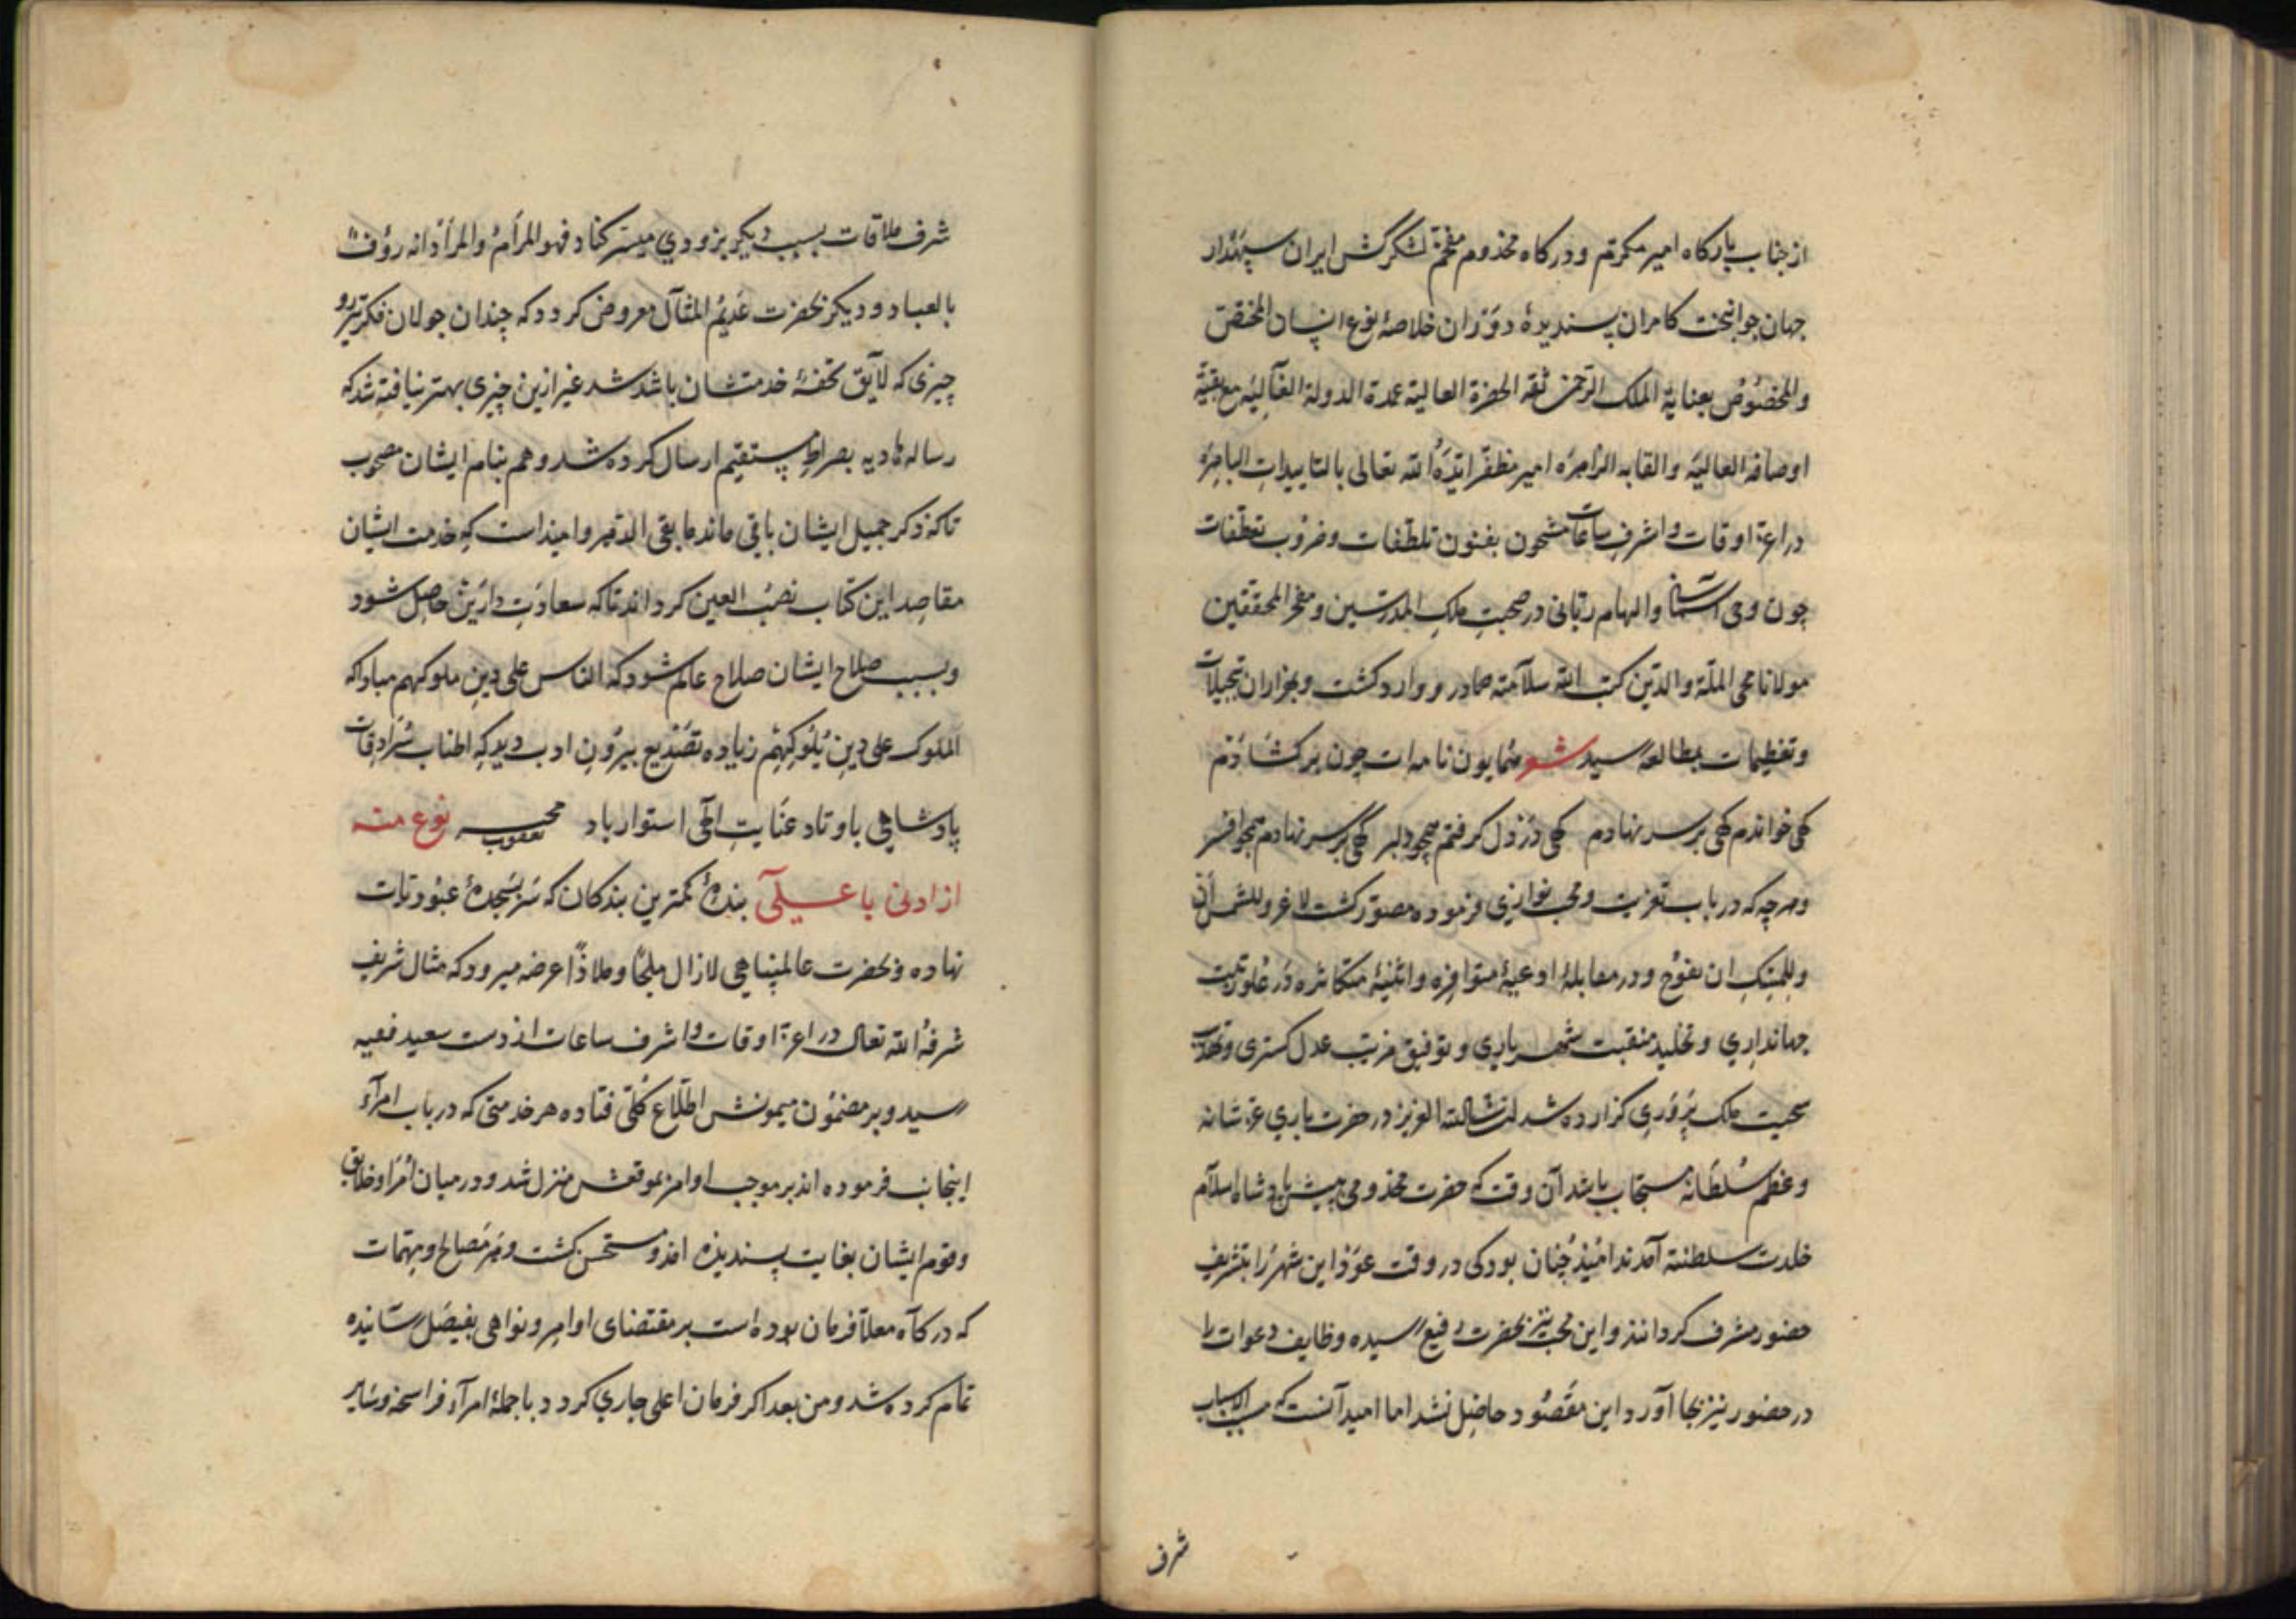 از جناب بارکاه امیر مکرم و درکاه مخدوم مفخم لشکرکش ایران سپهدار
جهان جوانبخت کامران پسندیدهٔ دوران خلاصهٔ نوع انسان المختص
والمخصوص بعنایة الملک الرحمن ثقة الحضرة العالیة عمدة الدولة مع بقیة
اوصافه العالیة والقابه الزاهرة امیر مظفر ایده الله تعالی بالتاییدات الباهرة
در اعز اوقات و اشرف ساعات مشحون بفنون تلطفات و ضروب تعطفات
چون وحی آسمانی و الهام ربانی در صحبت ملک المدرسین و مفخر المحققین
مولانا محی الملة والدین کتب الله سلامته صادر و وارد کشت و بهزاران تبجیلات
و تعظیمات بمطالعه رسید شعر همایون نامه ات چون برکشادم
کهی خواندم کهی برسر نهادم کهی در دل کرفتم همچو دلبر کهی برسر نهادم همچو افسر
و هرچه که در باب تعزیت و محب نوازی فرموده مصور کشت لا غرو للشمس ان
وللمسک ان یفوح و در مقابلهٔ ادعیهٔ متوافره و اثنیهٔ متکاثره در علو رتبت
جهانداری و تخلید منقبت شهریاری و توفیق مزیت عدل کستری و
سجیت ملک پروری کزارده شد ان شاالله العزیز در حضرت باری عز شانه
و عظم سلطانه مستجاب باشد آن وقت که حضرت مخدومی پیش پادشاه اسلام
خلدت سلطنته آمدند امید چنان بود کی در وقت عود این شهر را بتشریف
حضور مشرف کردانند و این محب نیز بحضرت رفیع رسیده وظایف دعوات را
در حضور نیز بجا آورد این مقصود حاصل نشد اما امید آنست که مسبب الاسباب
شرف
شرف ملاقات بسبب دیکر بزودی میسر کناد فهو المرام والمراد انه رؤف
بالعباد و دیکر بحضرت عدیم المثال معروض کردد که چندان جولان فکر
چیزی که لایق تحفهٔ خدمتشان باشد شد غیر ازین چیزی بهتر نیافته شد که
رساله هادیه بصراط مستقیم ارسال کرده شد و هم بنام ایشان مصحوب
تا که ذکر جمیل ایشان باقی ماند ما بقی الدهر و امیداست که خدمت ایشان
مقاصد این کتاب نصب العین کرداند تا که سعادت دارین حاصل شود
و بسبب صلاح ایشان صلاح عالم شود که الناس علی دین ملوکهم مبادا که
الملوک علی دین ملوکهم زیاده تصدیع بیرون ادب دید که اطناب سرادقات
پادشاهی باوتاد عنایت الهی استوار باد محبه یعقوب نوع منه
از ادنی با علی بندهٔ کمترین بندکان که سر بسجدهٔ عبودیات
نهاده و بحضرت عالمپناهی لازال ملجأ و ملاذا عرضه میرود که مثال شریف
شرفه الله تعالی در اعز اوقات و اشرف ساعات از دست سعید فقیه
رسید و بر مضمون میمونش اطلاع کلی فتاده هر خدمتی که در باب امرآء
اینجانب فرموده اند بر موجب اوامر بموقعش منزل شد و در میان امرا و خلایق
و قوم ایشان بغایت پسندیده افتد و مستحسن کشت و هر مصالح و مهمات
که درکآه معلا فرمان بوده است بر مقتضای اوامر و نواهی بفیصل رسانیده
تمام کرده شد و من بعد اکر فرمان اعلی جاری کردد با جملهٔ امرآء و سایر